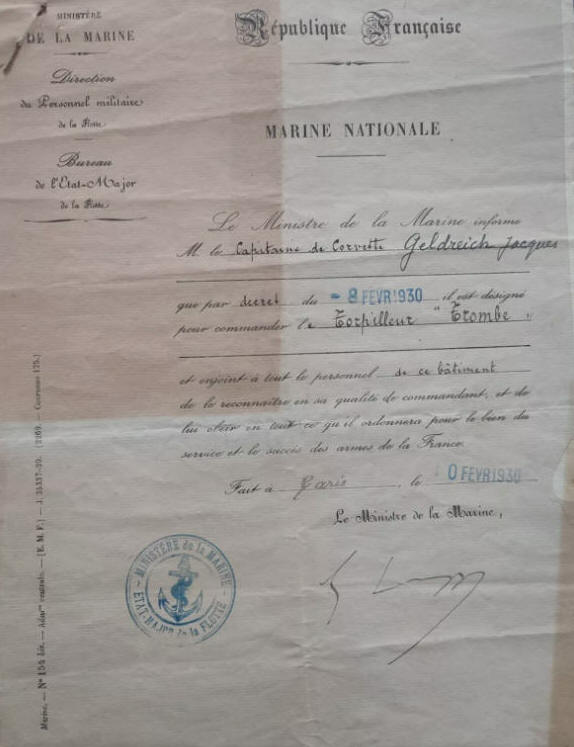 MINISTÈRE
DE LA MARINE
Direction
du Personnel militaire
de la Flotte
Bureau
de l'Etat-Major
de la Flotte
République Française
MARINE NATIONALE
Le Ministre de la Marine informe
M. le Capitaine de Corvette Geldreich Jacques
que par decret du - 8 FEVR 1930 il est désigné
pour commander le Torpilleur "Trombe"
et enjoint à tout le personnel de ce bâtiment
de le reconnaître en sa qualité de commandant, et de
lui obéir en tout ce qu'il ordonnera pour le bien du
service et le succès des armes de la France.
Fait à Paris, le 0 FEVR 1930
Le Ministre de la Marine,
MINISTÈRE de la MARINE
ETAT-MAJOR de la FLOTTE
Marine. — N° 154 bis. — Adm^on centrale. — [E. M. F.] — J. 35337-29.